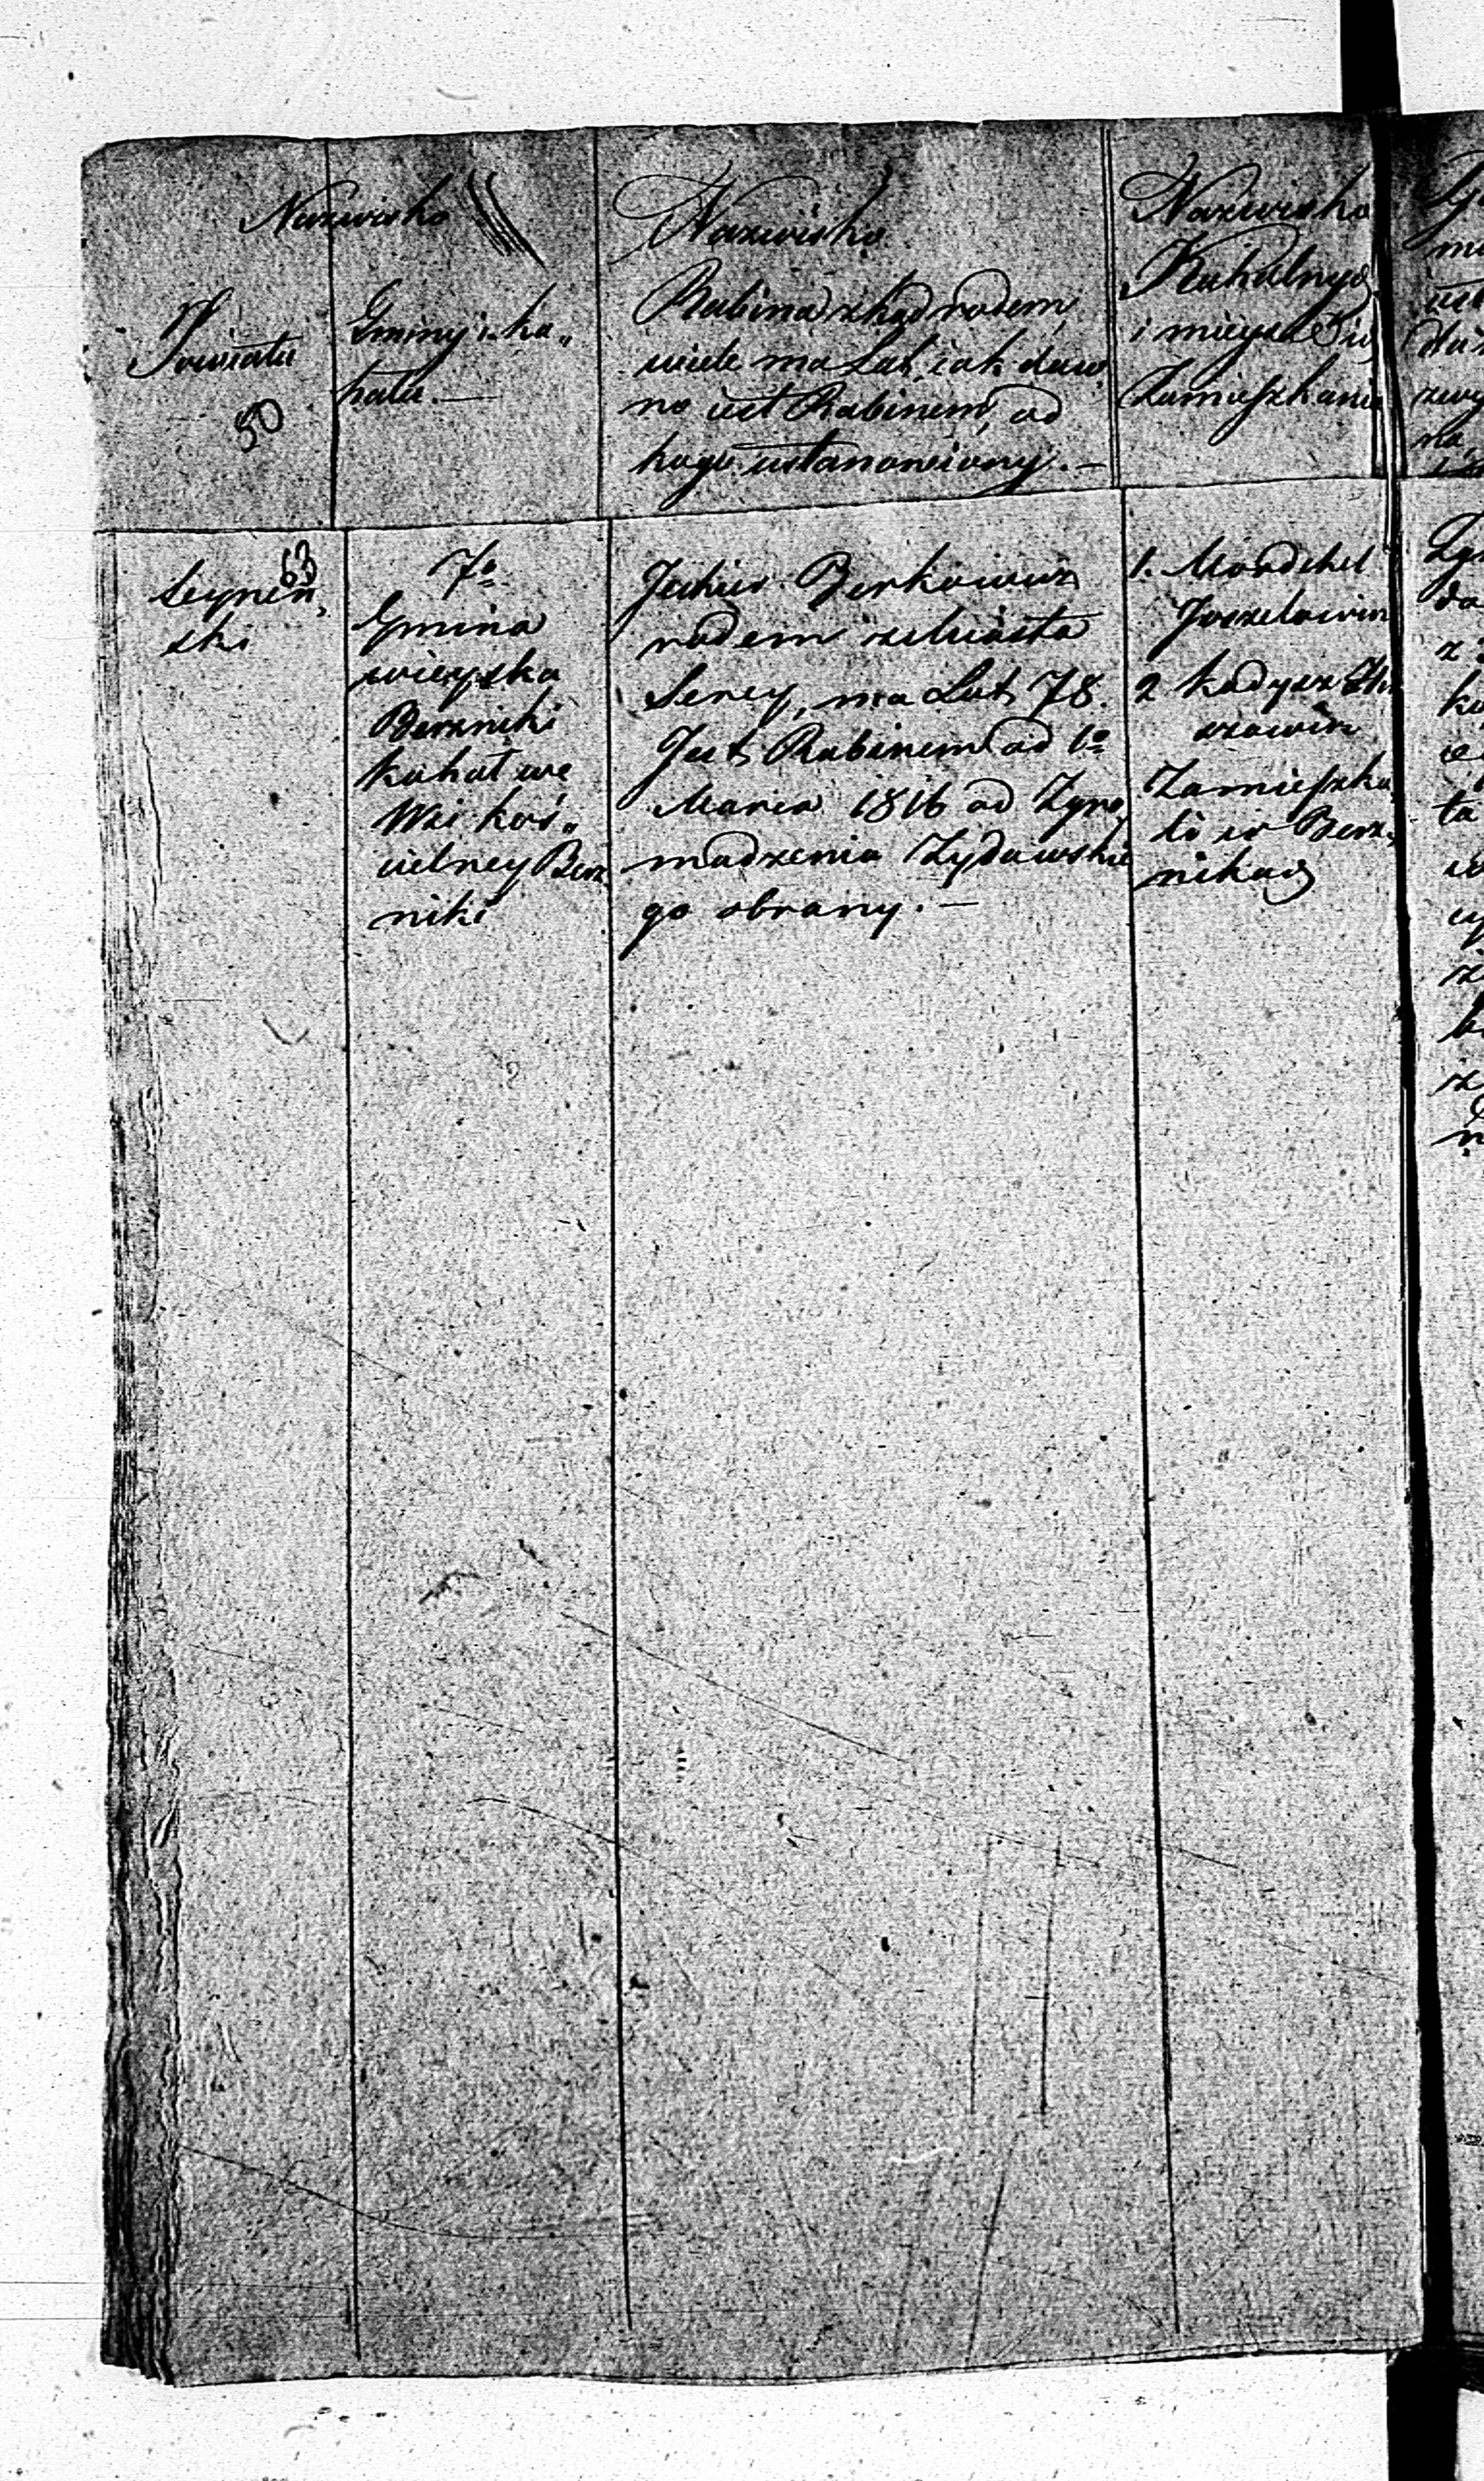 Nazwisko
Powiatu
50
Gminy i ka„
hału. —
Nazwisko
Rabina zkąd rodem,
wiele ma Lat, iak daw
no iest Rabinem, od
kogo ustanowiony. —
Nazwiska
Kahalnych
i mieysce Ich
Zamieszkania
63
Seyneń„
ski
7o
Gmina
wieyska
Berzniki
kahał we
Wsi koś„
cielney Berz
niki
Berkowicz
rodem z Miasta
Serey, ma Lat 78.
Jest Rabinem od 1o
Marca 1816 od Zgro
madzenia Zydowskie
go obrany. —
1. Mordchel
Joszelowicz
2 Kadysz
Zamieszka
li w Berz„
nikach